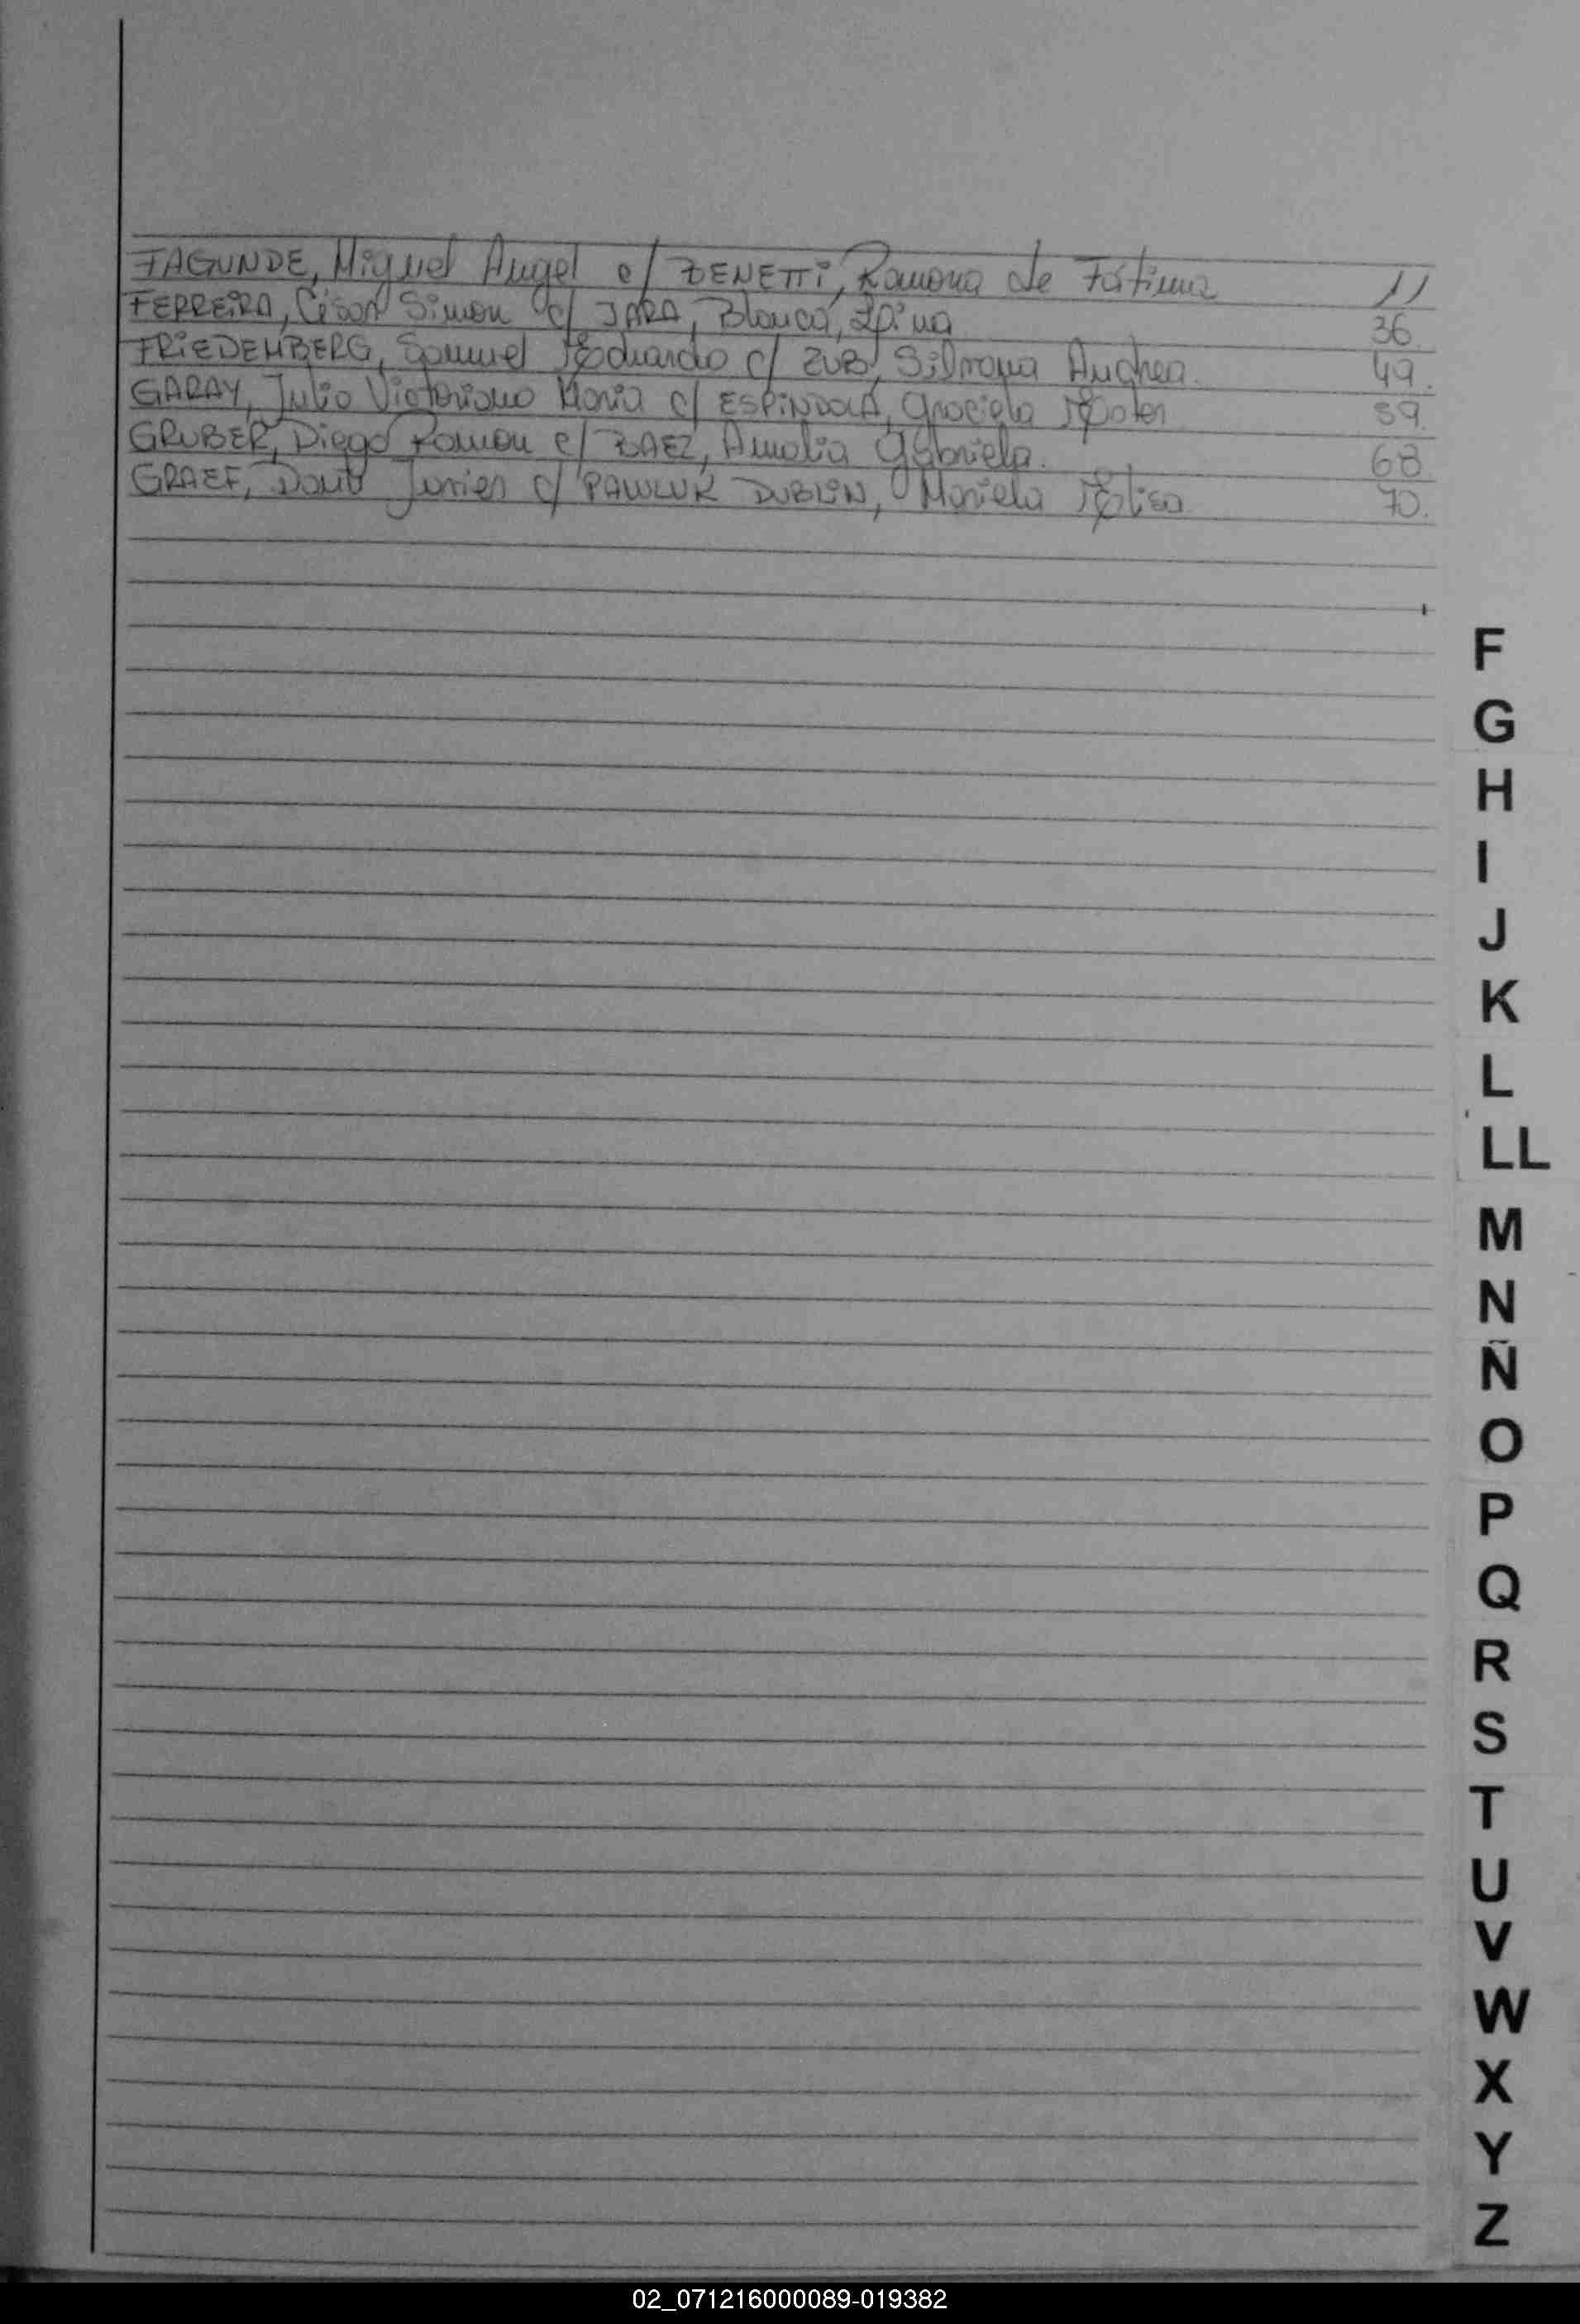 FAGUNDE, Miguel Angel c/ BENETTI, Ramona de Fatima 11
FERREIRA, César Simon c/ JARA, Blanca 36
FRIEDEMBERG, Samuel Eduardo c/ ZUB, Silvana Andrea. 49.
GARAY, Julio Victoriano Maria c/ ESPINDOLA, Graciela Ester 59.
GRUBER, Diego Ramon c/ BAEZ, Amalia Gabriela. 68
GRAEF, David Javier c/ PAWLUK DUBLIN, Mariela Elisa 70.
F
G
H
I
J
K
L
LL
M
N
Ñ
O
P
Q
R
S
T
U
V
W
X
Y
Z
02_071216000089-019382